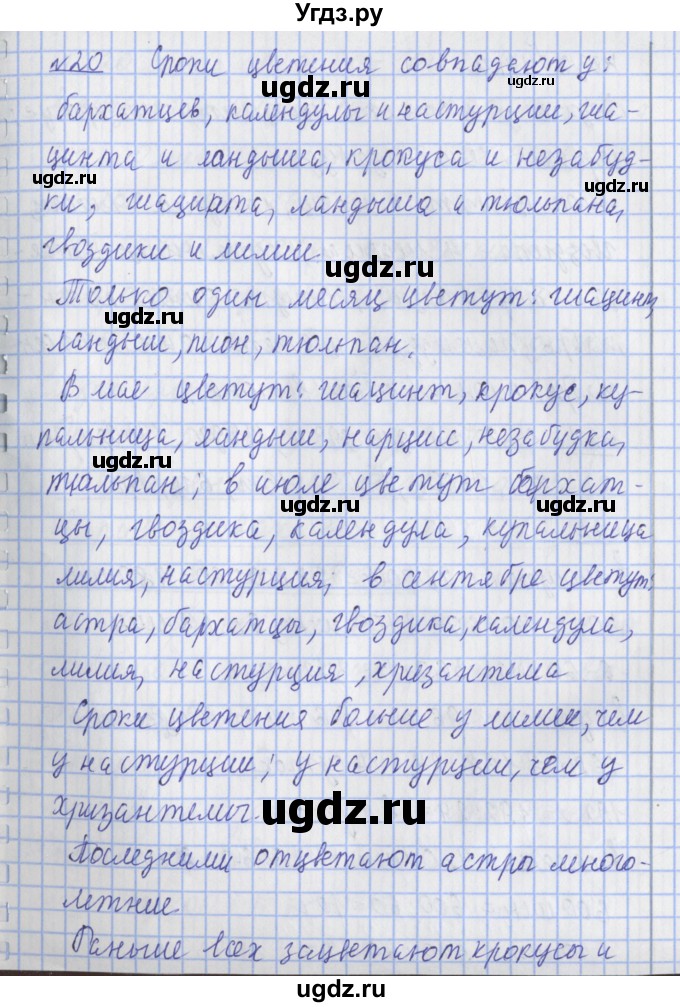 Угдз.ру
№20 Сроки цветения совпадают у:
бархатцев, календулы и настурции, гиа-
цинта и ландыша, крокуса и незабуд-
ки, гиацинта, ландыша и тюльпана,
гвоздики и лилии
Только один месяц цветут: гиацинт,
ландыш, пион, тюльпан.
В мае цветут: гиацинт, крокус, ку-
пальница, ландыш, нарцисс, незабудка,
тюльпан; в июле цветут бархат-
цы, гвоздика, календула, купальница
лилия, настурция, в сентябре цветут:
астра, бархатцы, гвоздика, календула,
лилия, настурция, хризантема
Сроки цветения больше у лилии, чем
у настурции; у настурции, чем у
хризантемы.
Последними отцветают астры много-
летние
Раньше всех зацветают крокусы и
ugdz.ru
ugdz.ru
ugdz.ru
ugdz.ru
ugdz.ru
ugdz.ru
ugdz.ru
ugdz.ru
ugdz.ru
ugdz.ru
ugdz.ru
ugdz.ru
ugdz.ru
ugdz.ru